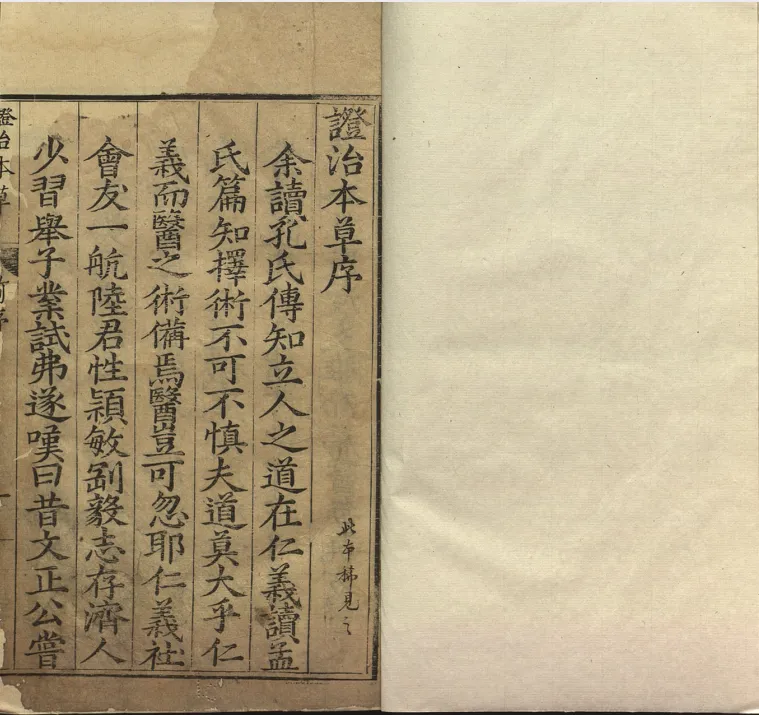 證治本草序
此本稀見之
余讀孔氏傳知立人之道在仁義讀孟
氏篇知擇術不可不慎夫道莫大乎仁
義而醫之術備焉醫豈可忽耶仁義社
會友一航陸君性穎敏剛毅志存濟人
少習舉子業試弗遂嘆曰昔文正公嘗
證治本草
序